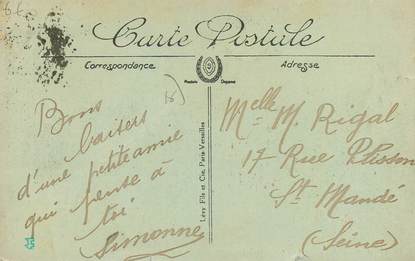 Carte Postale
Correspondance
Adresse
Modèle Déposé
Bons
baisers
d'une petite amie
qui pense à
toi
Simonne
Lévy Fils et Cie, Paris-Versailles
Melle M. Rigal
17 Rue Plisson
St Mandé
(Seine)